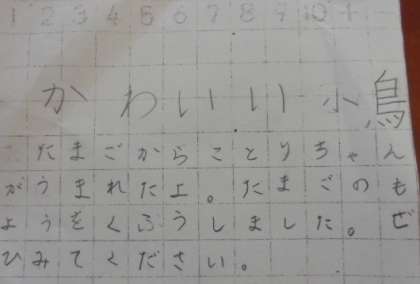 1 2 3 4 5 6 7 8 9 10 +
かわいい小鳥
たまごからことりちゃん
がうまれたよ。たまごのも
ようをくふうしました。ぜ
ひみてください。